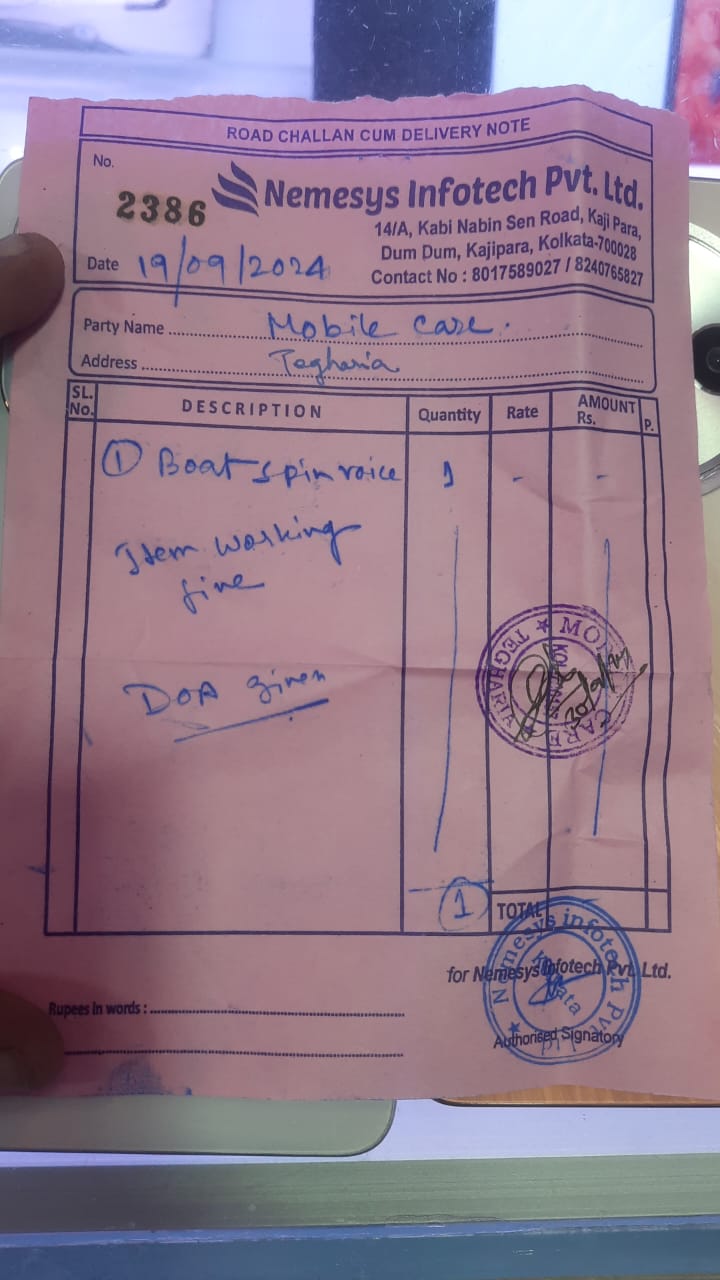 ROAD CHALLAN CUM DELIVERY NOTE
No.
2386
Nemesys Infotech Pvt. Ltd.
14/A, Kabi Nabin Sen Road, Kaji Para,
Dum Dum, Kajipara, Kolkata-700028
Contact No : 8017589027 / 8240765827
Date 19/09/2024
Party Name Mobile Care.
Address Tegharia
SL. No. DESCRIPTION Quantity Rate AMOUNT Rs. P.
① Boat spin voice 1 - -
Item working
fine
DOA given
MO
CARE
TEGHARIA
1 TOTAL
for Nemesys Infotech Pvt. Ltd.
Nemesys infotech Pvt
Rupees in words :
Authorised Signatory